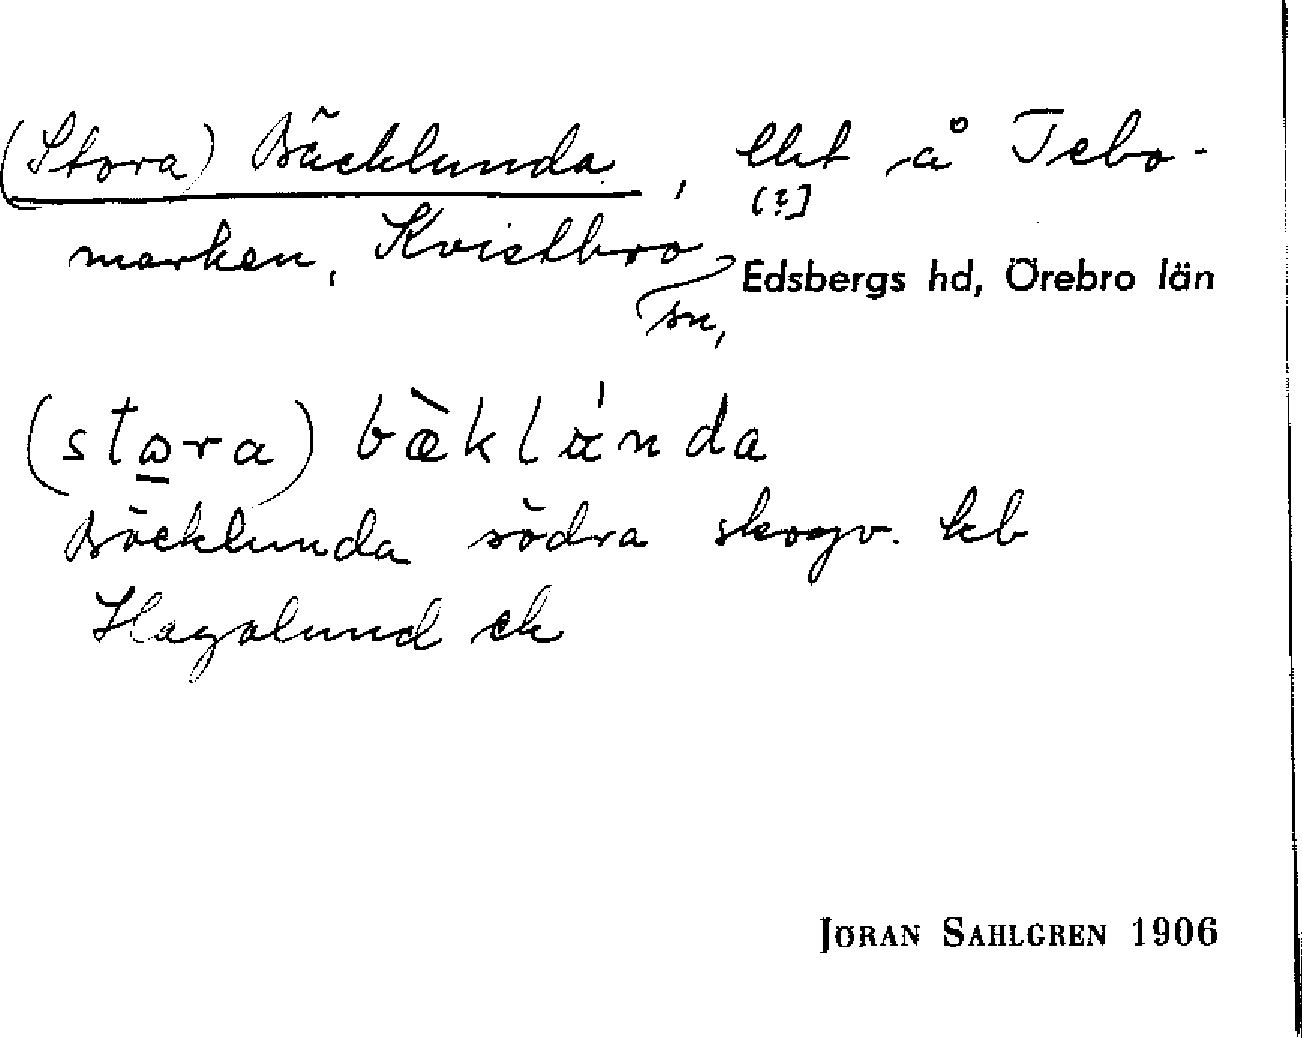 (Stora) Bäcklunda, lht å Tebo-
[?]
marken, Kvistbro sn, Edsbergs hd, Örebro län
(stora) bæ̀klánda
Bäcklunda södra skogv. kb
Hagalund ek
JÖRAN SAHLGREN 1906